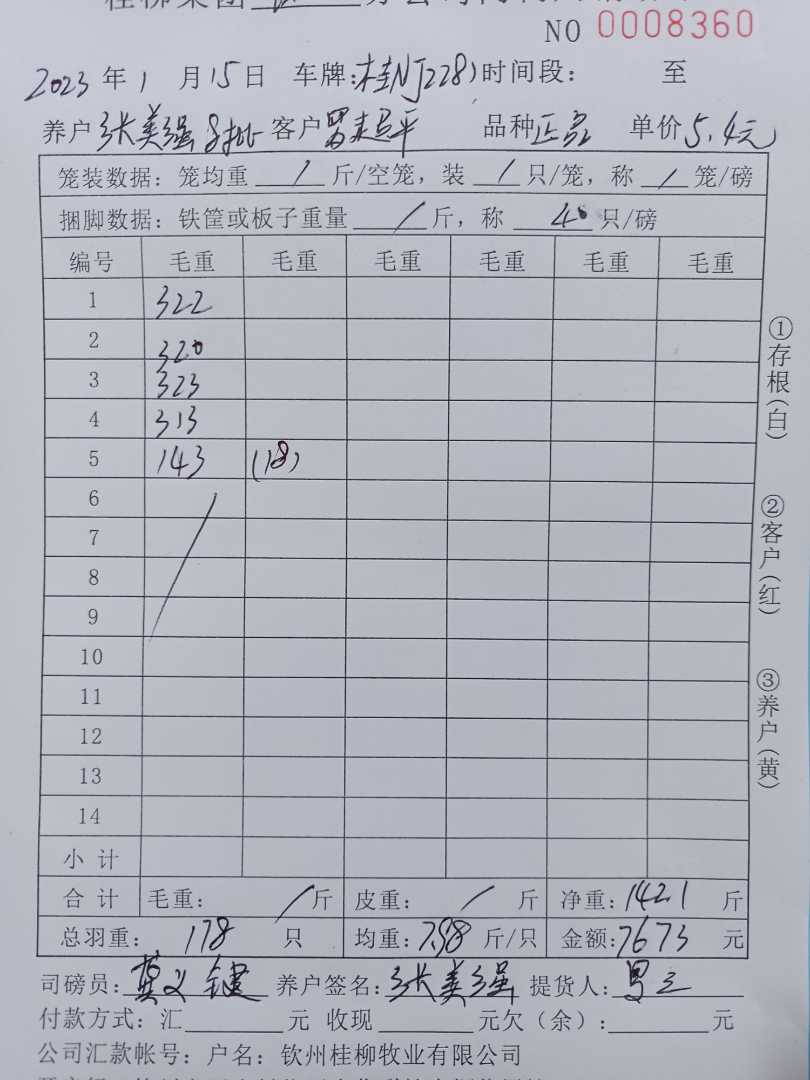 NO 0008360
2023年1月15日 车牌:桂NJ2281 时间段: 至
养户张美强8批 客户 平 品种正 单价5.4元
笼装数据:笼均重 / 斤/空笼,装 / 只/笼,称 / 笼/磅
捆脚数据:铁筐或板子重量 / 斤,称 40 只/磅
编号 毛重 毛重 毛重 毛重 毛重 毛重
1 322
2 320
3 323
4 313
5 143 (18)
6
7
8
9
10
11
12
13
14
小计
合计 毛重: / 斤 皮重: / 斤 净重:1421 斤
总羽重: 178 只 均重:7.98 斤/只 金额:7673 元
①存根(白)
②客户(红)
③养户(黄)
司磅员: 键 养户签名:张美强 提货人:
付款方式:汇 元 收现 元欠(余): 元
公司汇款帐号:户名:钦州桂柳牧业有限公司